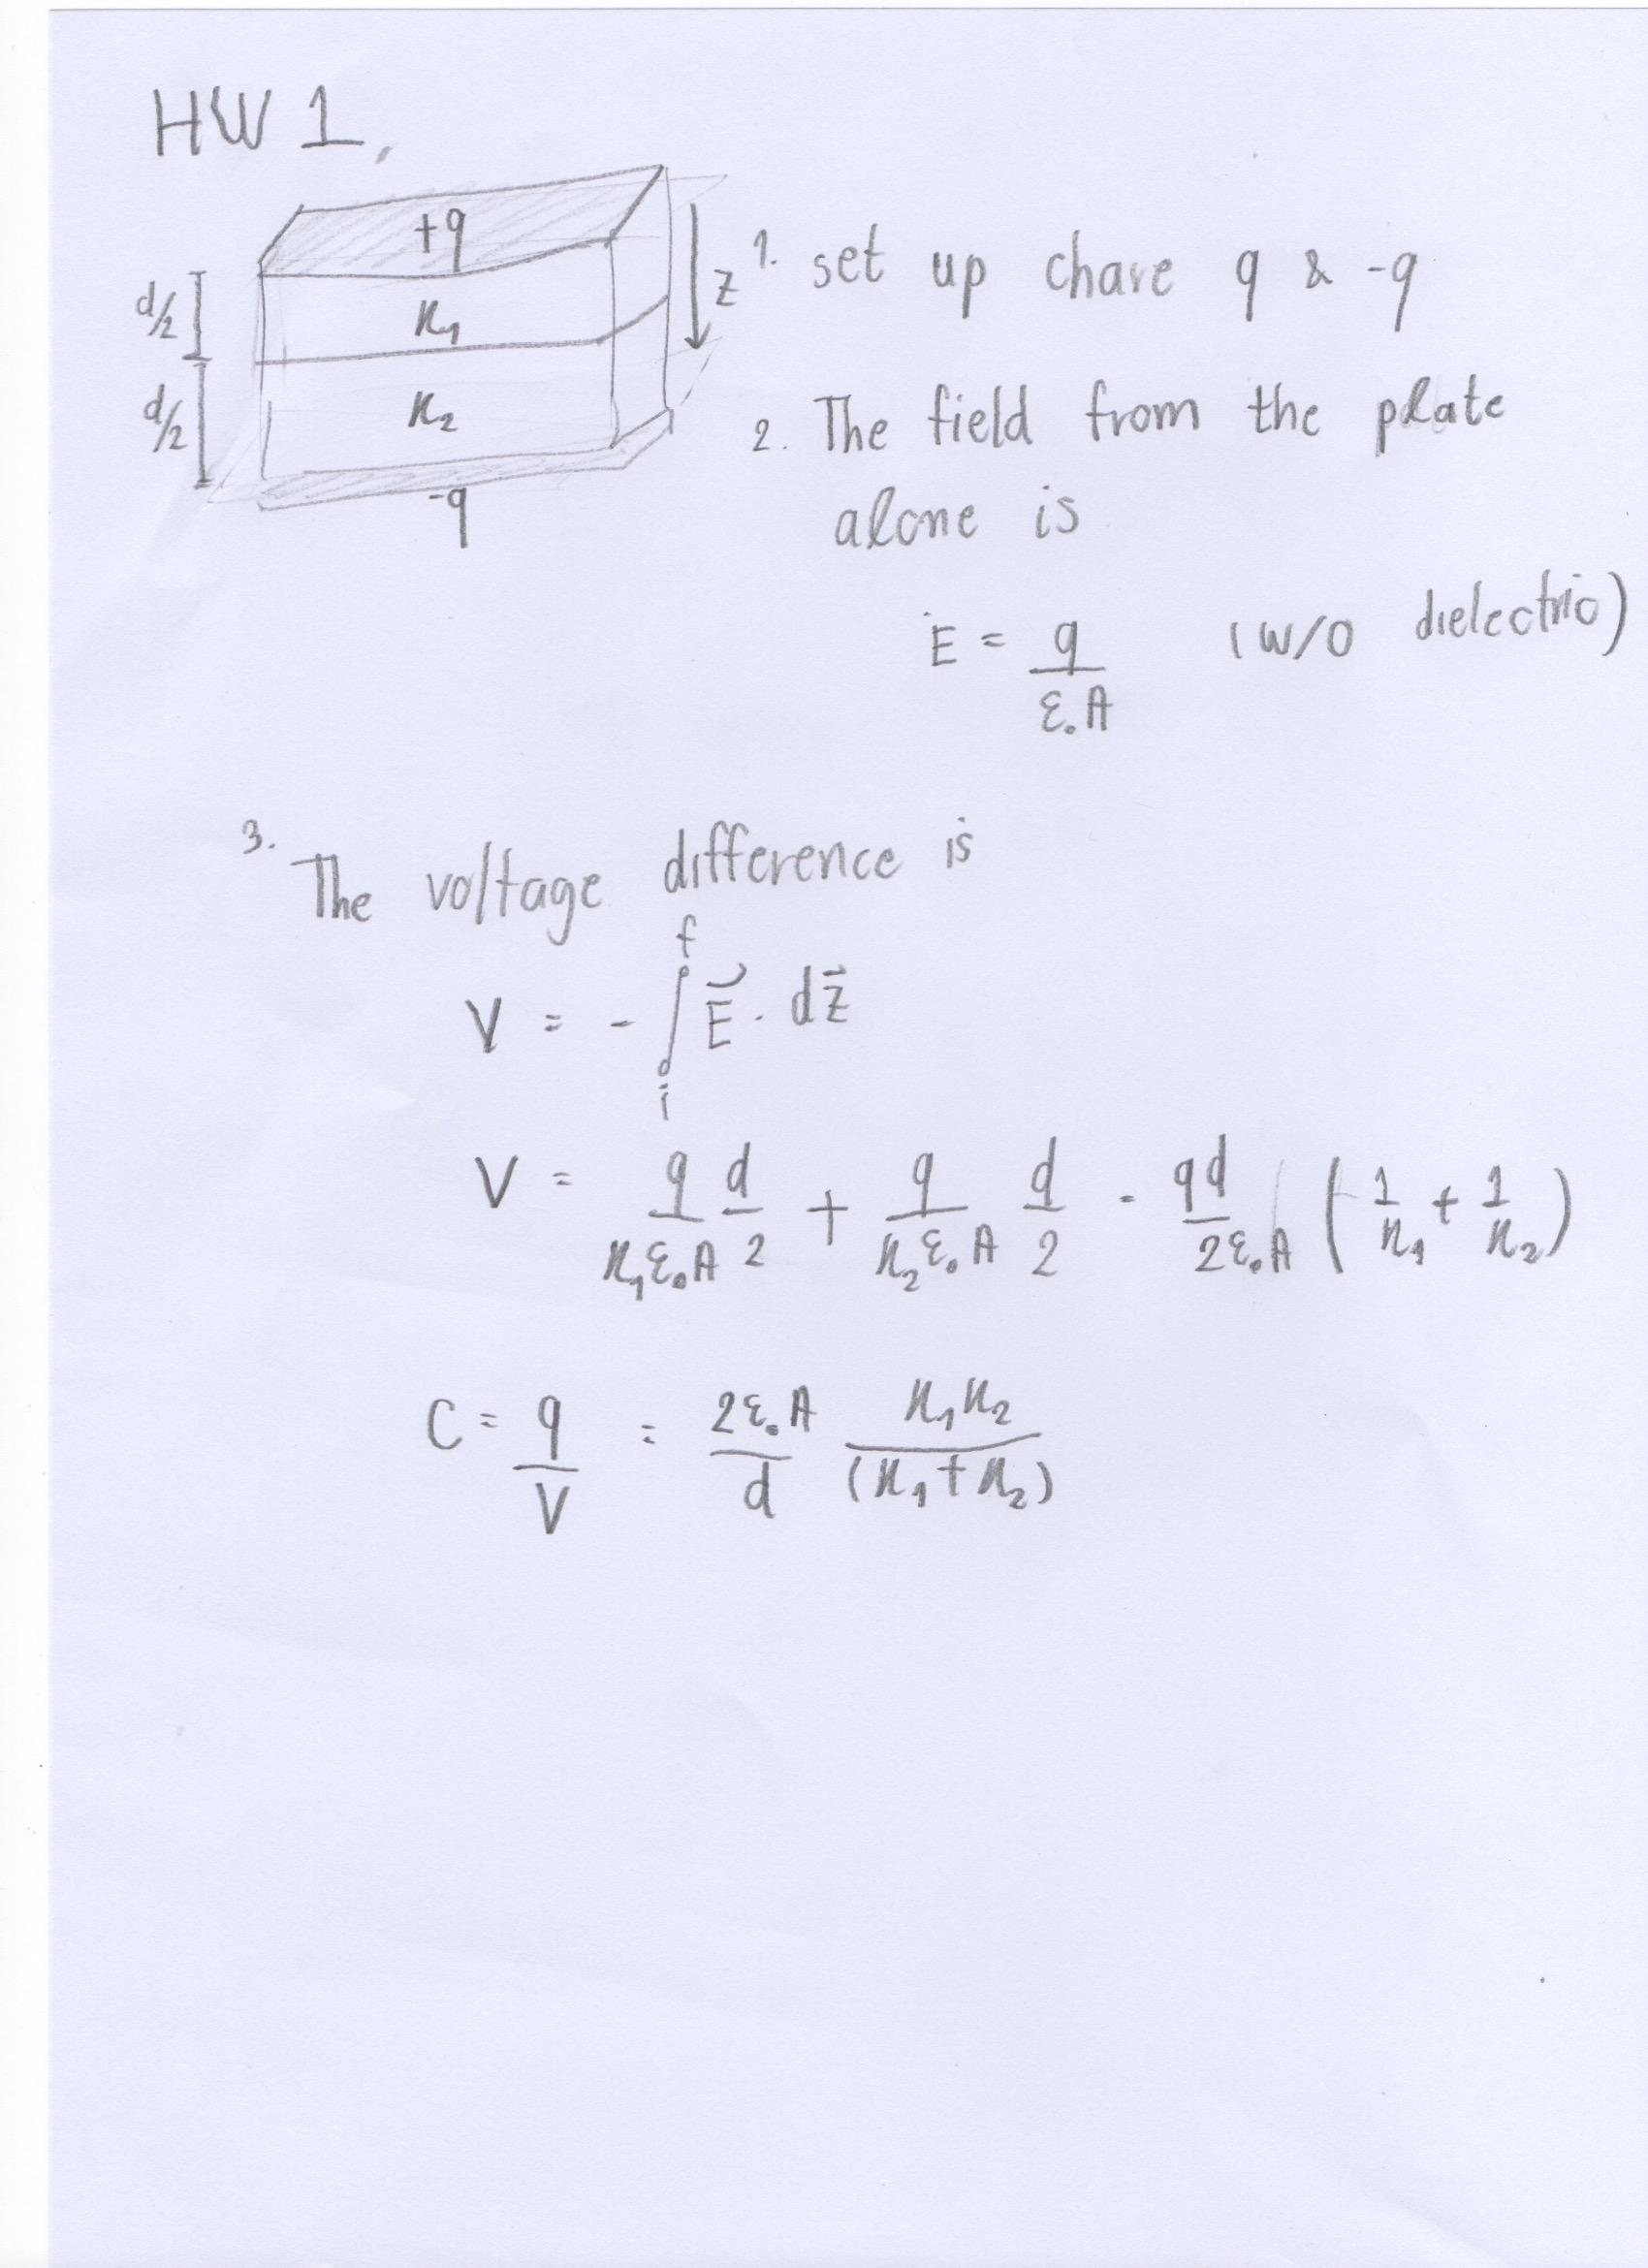 HW 1.
+q
d/2
κ₁
z
d/2
κ₂
-q
1. set up chare q & -q
2. The field from the plate
alone is
E = q/(ε₀A) (w/o dielectric)
3. The voltage difference is
V = - ∫ᵢᶠ E⃗ · dz⃗
V = q/(κ₁ε₀A) d/2 + q/(κ₂ε₀A) d/2 = qd/(2ε₀A) (1/κ₁ + 1/κ₂)
C = q/V = 2ε₀A/d κ₁κ₂/(κ₁+κ₂)